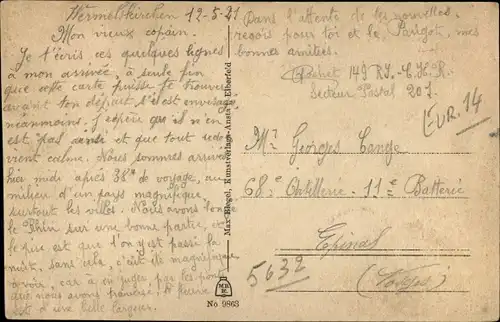 Wermelskirchen 12-5-21
Mon vieux copain.
Je t'écris ces quelques lignes
à mon arrivée, à seule fin
que cette carte puisse te trouver
avant ton départ s'il est envisagé,
néanmoins. J'espère qu'il n'en
est pas ainsi et que tout rede
vient calme. Nous sommes arrivés
hier midi après 38h de voyage, au
milieu d'un pays magnifique,
surtout les villes. Nous avons longé
le Rhin sur une bonne partie, et
le pire est que l'on y est passé la
nuit, sans cela, c'eut été magnifique
à voir, car à en juger par les ponts
que nous avons traversé, le fleuve
est d'une belle largeur.
Dans l'attente de tes nouvelles
reçois pour toi et le Parigot, mes
bonnes amitiés.
149 R.I. - C.H.R.
Secteur Postal 207.
EUR. 14
Mr Georges Cange
68e Artillerie - 11e Batterie
Epinal
(Vosges)
5632
Max Biegel, Kunstverlags-Anstalt Elberfeld
No 9863